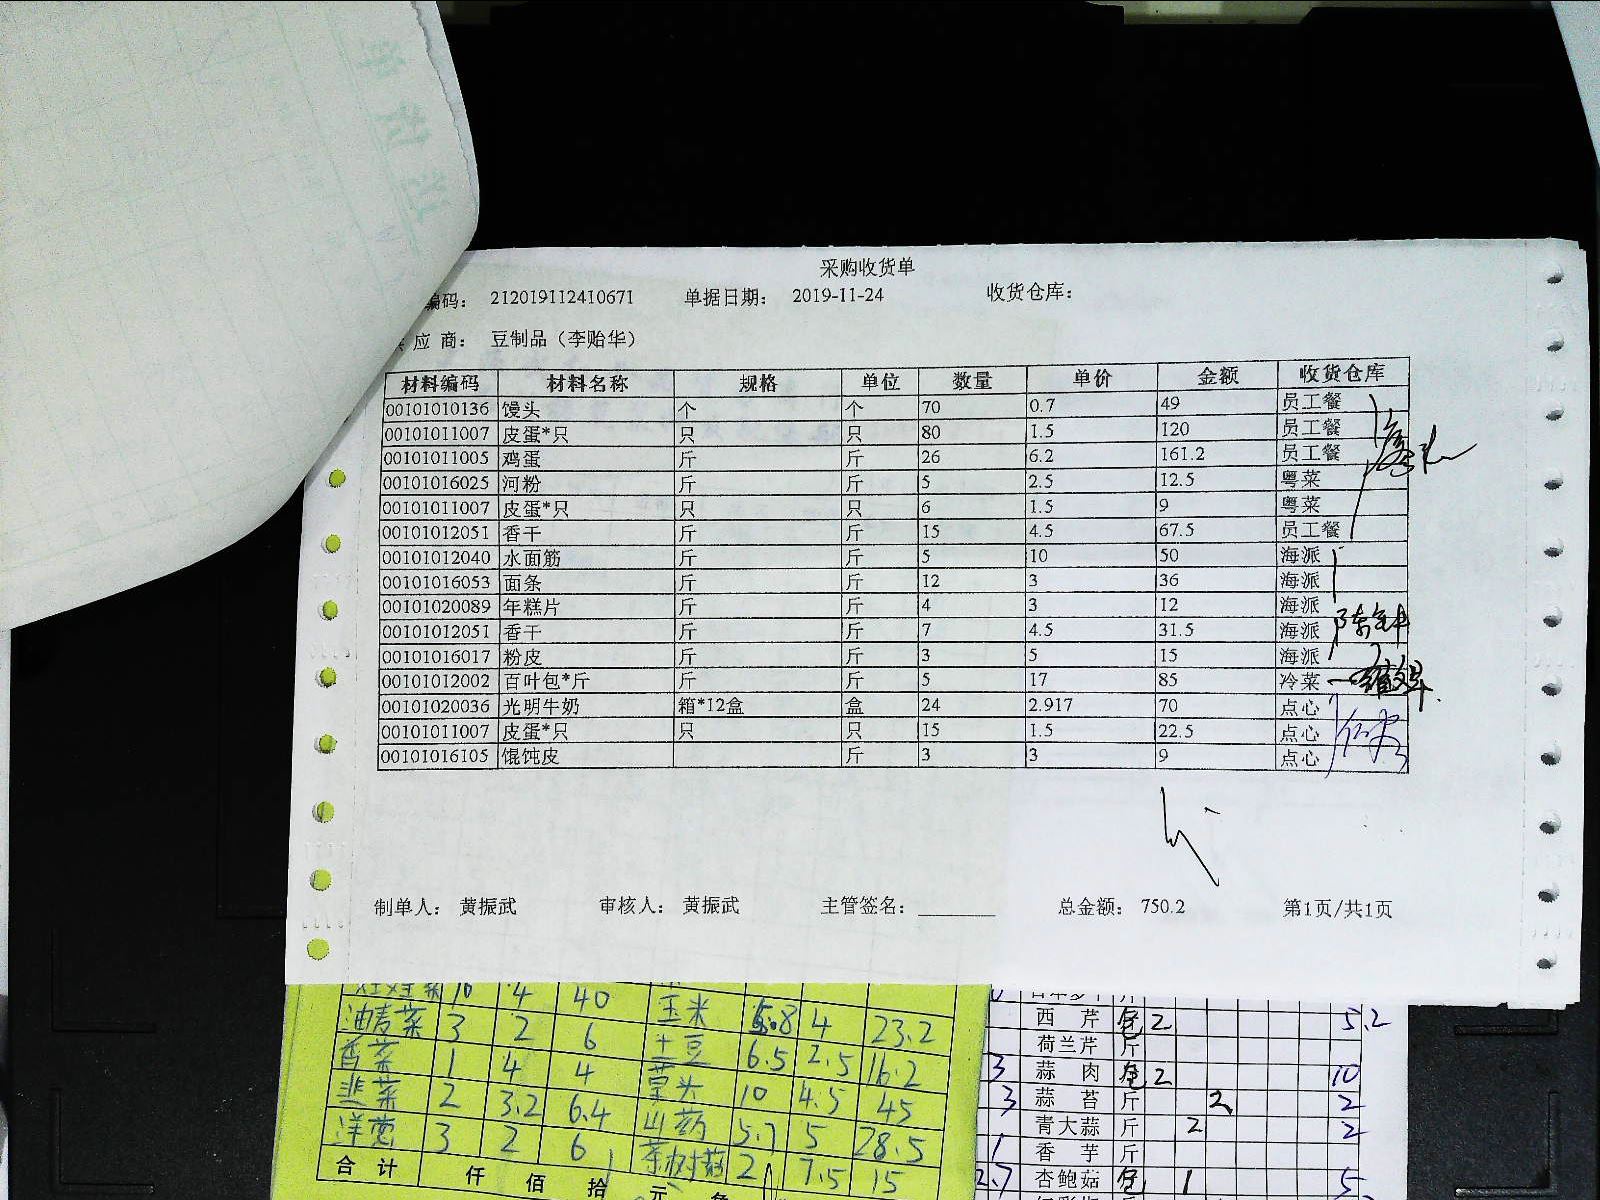 采购收货单
编码： 212019112410671 单据日期： 2019-11-24 收货仓库：
应 商： 豆制品（李贻华）
材料编码 材料名称 规格 单位 数量 单价 金额 收货仓库
00101010136 馒头 个 个 70 0.7 49 员工餐
00101011007 皮蛋*只 只 只 80 1.5 120 员工餐
00101011005 鸡蛋 斤 斤 26 6.2 161.2 员工餐
00101016025 河粉 斤 斤 5 2.5 12.5 粤菜
00101011007 皮蛋*只 只 只 6 1.5 9 粤菜
00101012051 香干 斤 斤 15 4.5 67.5 员工餐
00101012040 水面筋 斤 斤 5 10 50 海派
00101016053 面条 斤 斤 12 3 36 海派
00101020089 年糕片 斤 斤 4 3 12 海派
00101012051 香干 斤 斤 7 4.5 31.5 海派
00101016017 粉皮 斤 斤 3 5 15 海派
00101012002 百叶包*斤 斤 斤 5 17 85 冷菜
00101020036 光明牛奶 箱*12盒 盒 24 2.917 70 点心
00101011007 皮蛋*只 只 只 15 1.5 22.5 点心
00101016105 馄饨皮 斤 3 3 9 点心
制单人： 黄振武 审核人： 黄振武 主管签名： 总金额： 750.2 第1页/共1页
10 4 40
油麦菜 3 2 6 玉米 5.8 4 23.2
香菜 1 4 4 土豆 6.5 2.5 16.2
韭菜 2 3.2 6.4 10 4.5 45
洋葱 3 2 6 山药 5.7 5 28.5
茶树菇 2 7.5 15
合 计 仟 佰 拾 元
西 芹 2 5.2
荷兰芹 斤
3 蒜 肉 2 10
3 蒜 苔 斤 2 2
青大蒜 斤 2 2
1 香 芋 斤
2.7 杏鲍菇 1 5